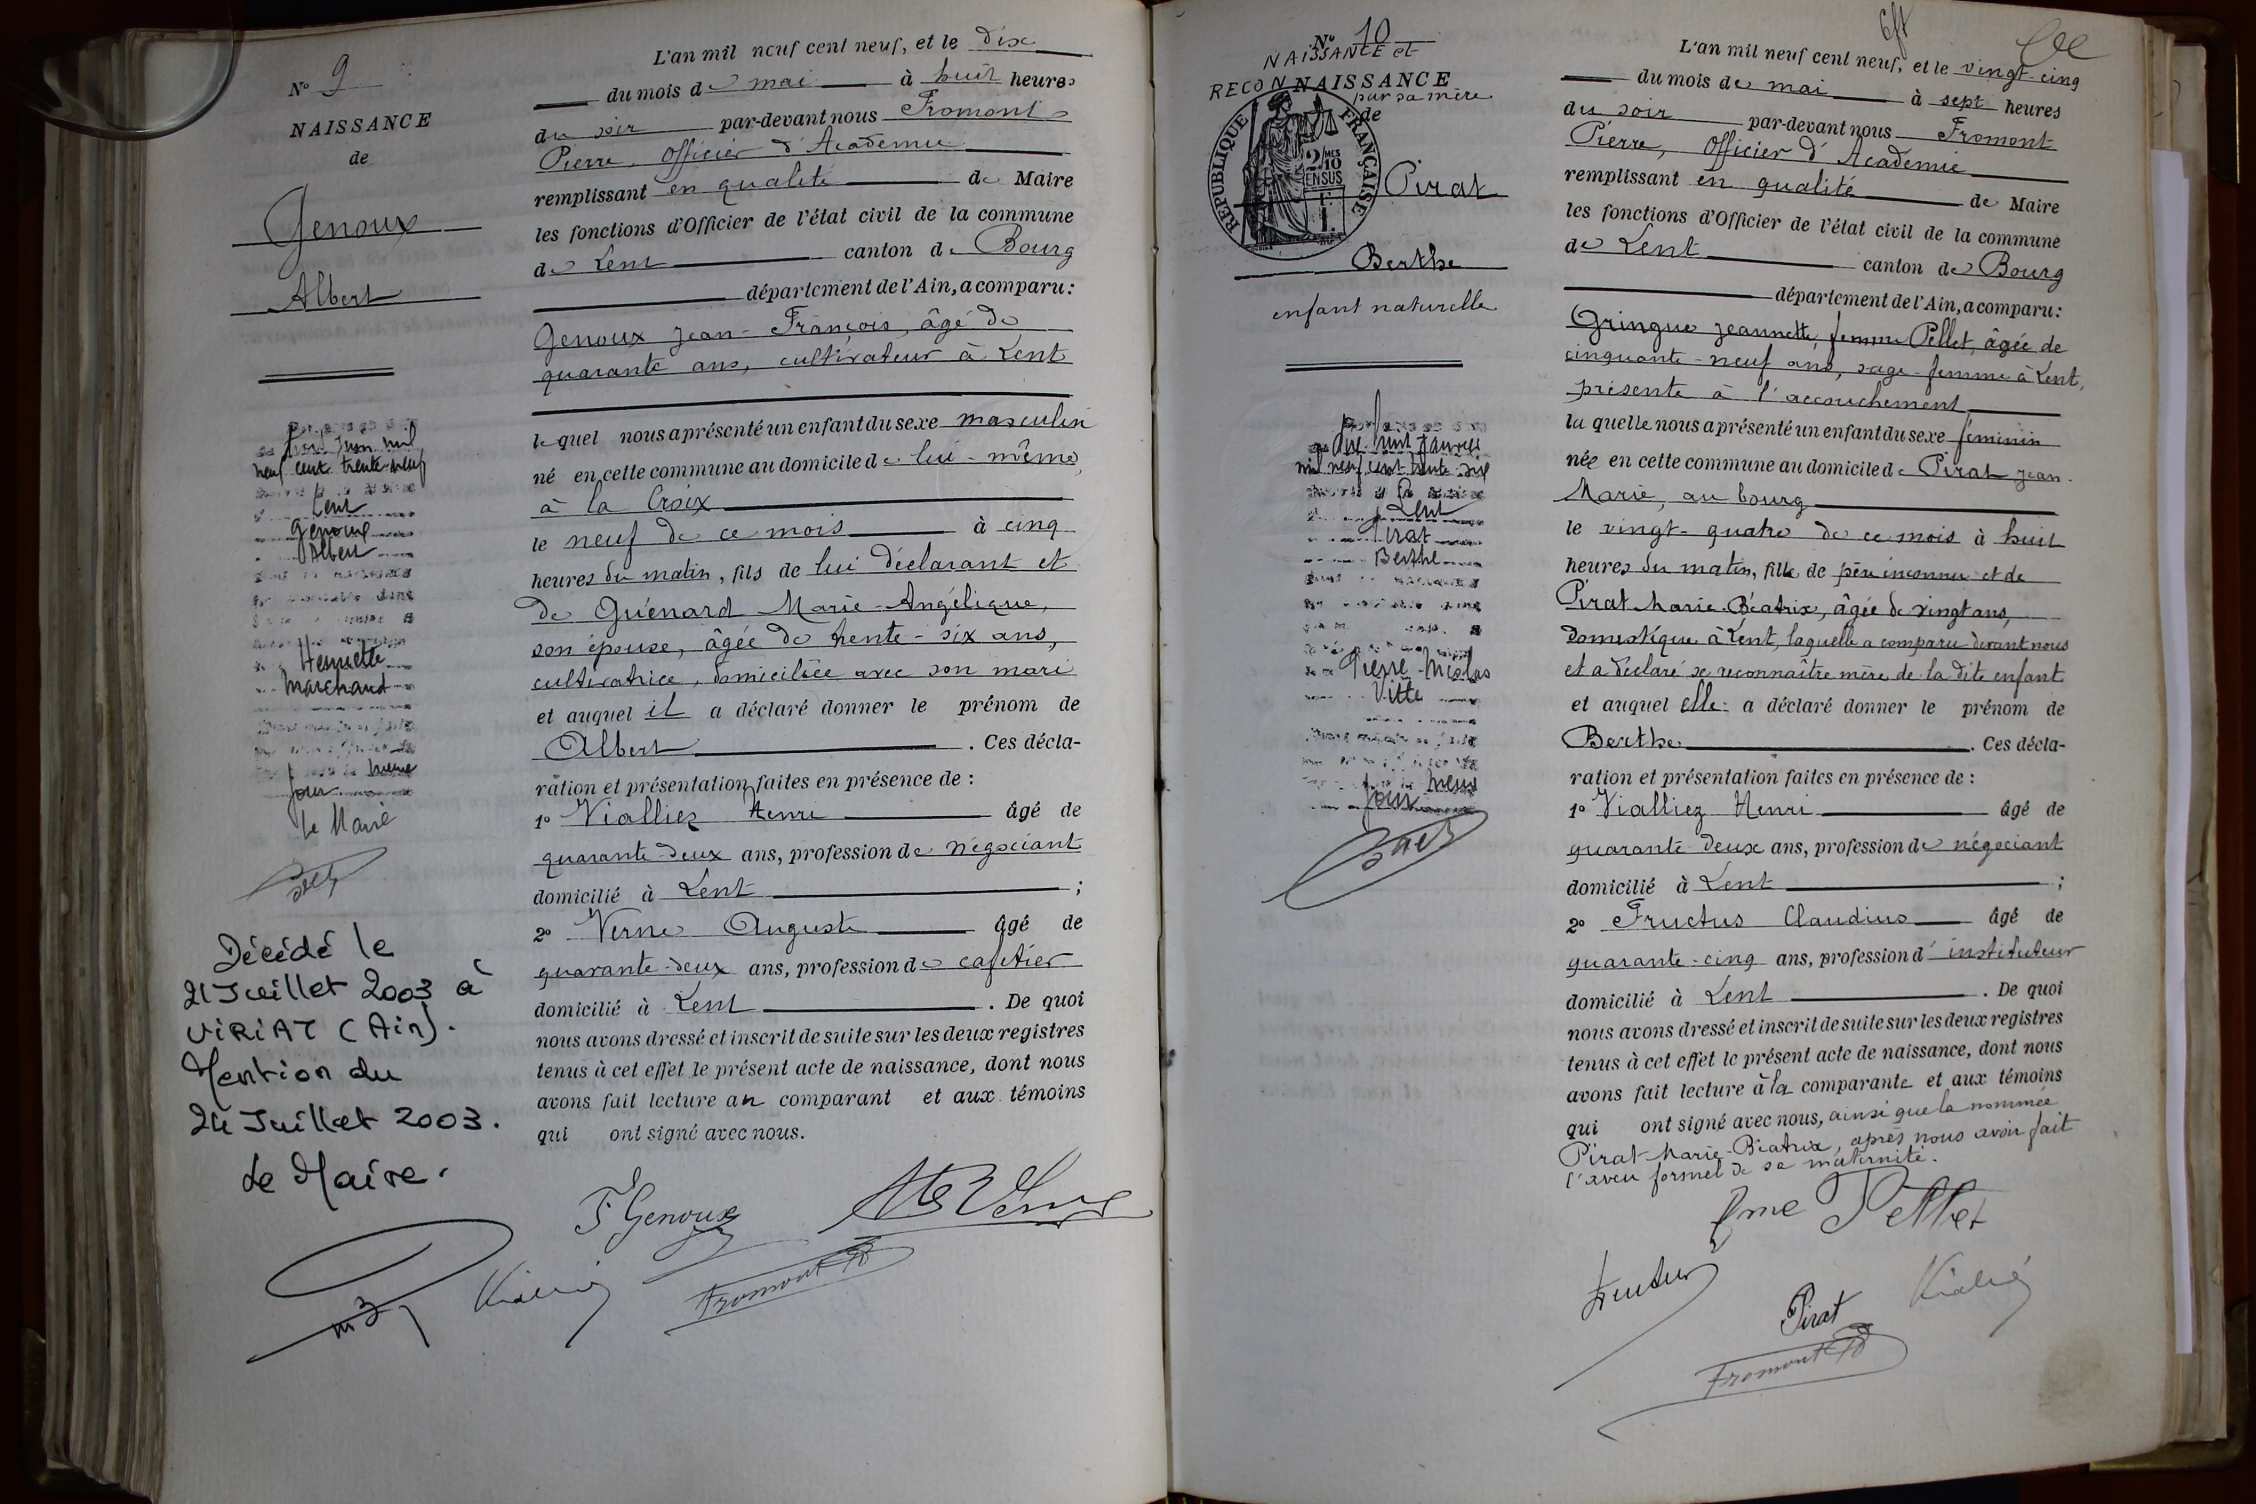 N° 9
NAISSANCE
de
Genoux
Albert
trois Juin mil
neuf cent trente-neuf
Lent
Genoux
Albert
Henriette
Marchand
même
jour
Le Maire
Décédé le
21 Juillet 2003 à
VIRIAT (Ain).
Mention du
24 Juillet 2003.
Le Maire.
L'an mil neuf cent neuf, et le dix
du mois de mai à huit heures
du soir par-devant nous Fromont
Pierre, Officier d'Académie
remplissant en qualité de Maire
les fonctions d'Officier de l'état civil de la commune
de Lent canton de Bourg
département de l'Ain, a comparu:
Genoux Jean-François, âgé de
quarante ans, cultivateur à Lent
lequel nous a présenté un enfant du sexe masculin
né en cette commune au domicile de lui-même,
à la Croix
le neuf de ce mois à cinq
heures du matin, fils de lui déclarant et
de Guénard Marie-Angélique,
son épouse, âgée de trente-six ans,
cultivatrice, domiciliée avec son mari
et auquel il a déclaré donner le prénom de
Albert . Ces décla-
ration et présentation faites en présence de :
1° Vialliez Henri âgé de
quarante-deux ans, profession de négociant
domicilié à Lent ;
2° Verne Auguste âgé de
quarante-deux ans, profession de cafetier
domicilié à Lent . De quoi
nous avons dressé et inscrit de suite sur les deux registres
tenus à cet effet le présent acte de naissance, dont nous
avons fait lecture au comparant et aux témoins
qui ont signé avec nous.
F Genoux
Fromont
N° 10
NAISSANCE et
RECONNAISSANCE
par sa mère
de
RÉPUBLIQUE FRANÇAISE
2/10
EN SUS
Pirat
Berthe
enfant naturelle
dix-huit janvier
mil neuf cent trente-six
Lent
Pirat
Berthe
Pierre-Nicolas
Vitte
même
jour
L'an mil neuf cent neuf, et le vingt-cinq
du mois de mai à sept heures
du soir par-devant nous Fromont
Pierre, Officier d'Academie
remplissant en qualité de Maire
les fonctions d'Officier de l'état civil de la commune
de Lent canton de Bourg
département de l'Ain, a comparu:
Gringue Jeannette, femme Pellet, âgée de
cinquante-neuf ans, sage-femme à Lent,
présente à l'accouchement
laquelle nous a présenté un enfant du sexe féminin
née en cette commune au domicile de Pirat Jean-
Marie, au bourg
le vingt-quatre de ce mois à huit
heures du matin, fille de père inconnu et de
Pirat Marie-Béatrix, âgée de vingt ans,
domestique à Lent, laquelle a comparu devant nous
et a déclaré se reconnaître mère de la dite enfant
et auquel elle a déclaré donner le prénom de
Berthe . Ces décla-
ration et présentation faites en présence de :
1° Vialliez Henri âgé de
quarante-deux ans, profession de négociant
domicilié à Lent ;
2° Fructus Claudius âgé de
quarante-cinq ans, profession d'instituteur
domicilié à Lent . De quoi
nous avons dressé et inscrit de suite sur les deux registres
tenus à cet effet le présent acte de naissance, dont nous
avons fait lecture à la comparante et aux témoins
qui ont signé avec nous, ainsi que la nommée
Pirat Marie-Béatrix, après nous avoir fait
l'aveu formel de sa maternité.
fme Pellet
Fructus
Pirat
Fromont